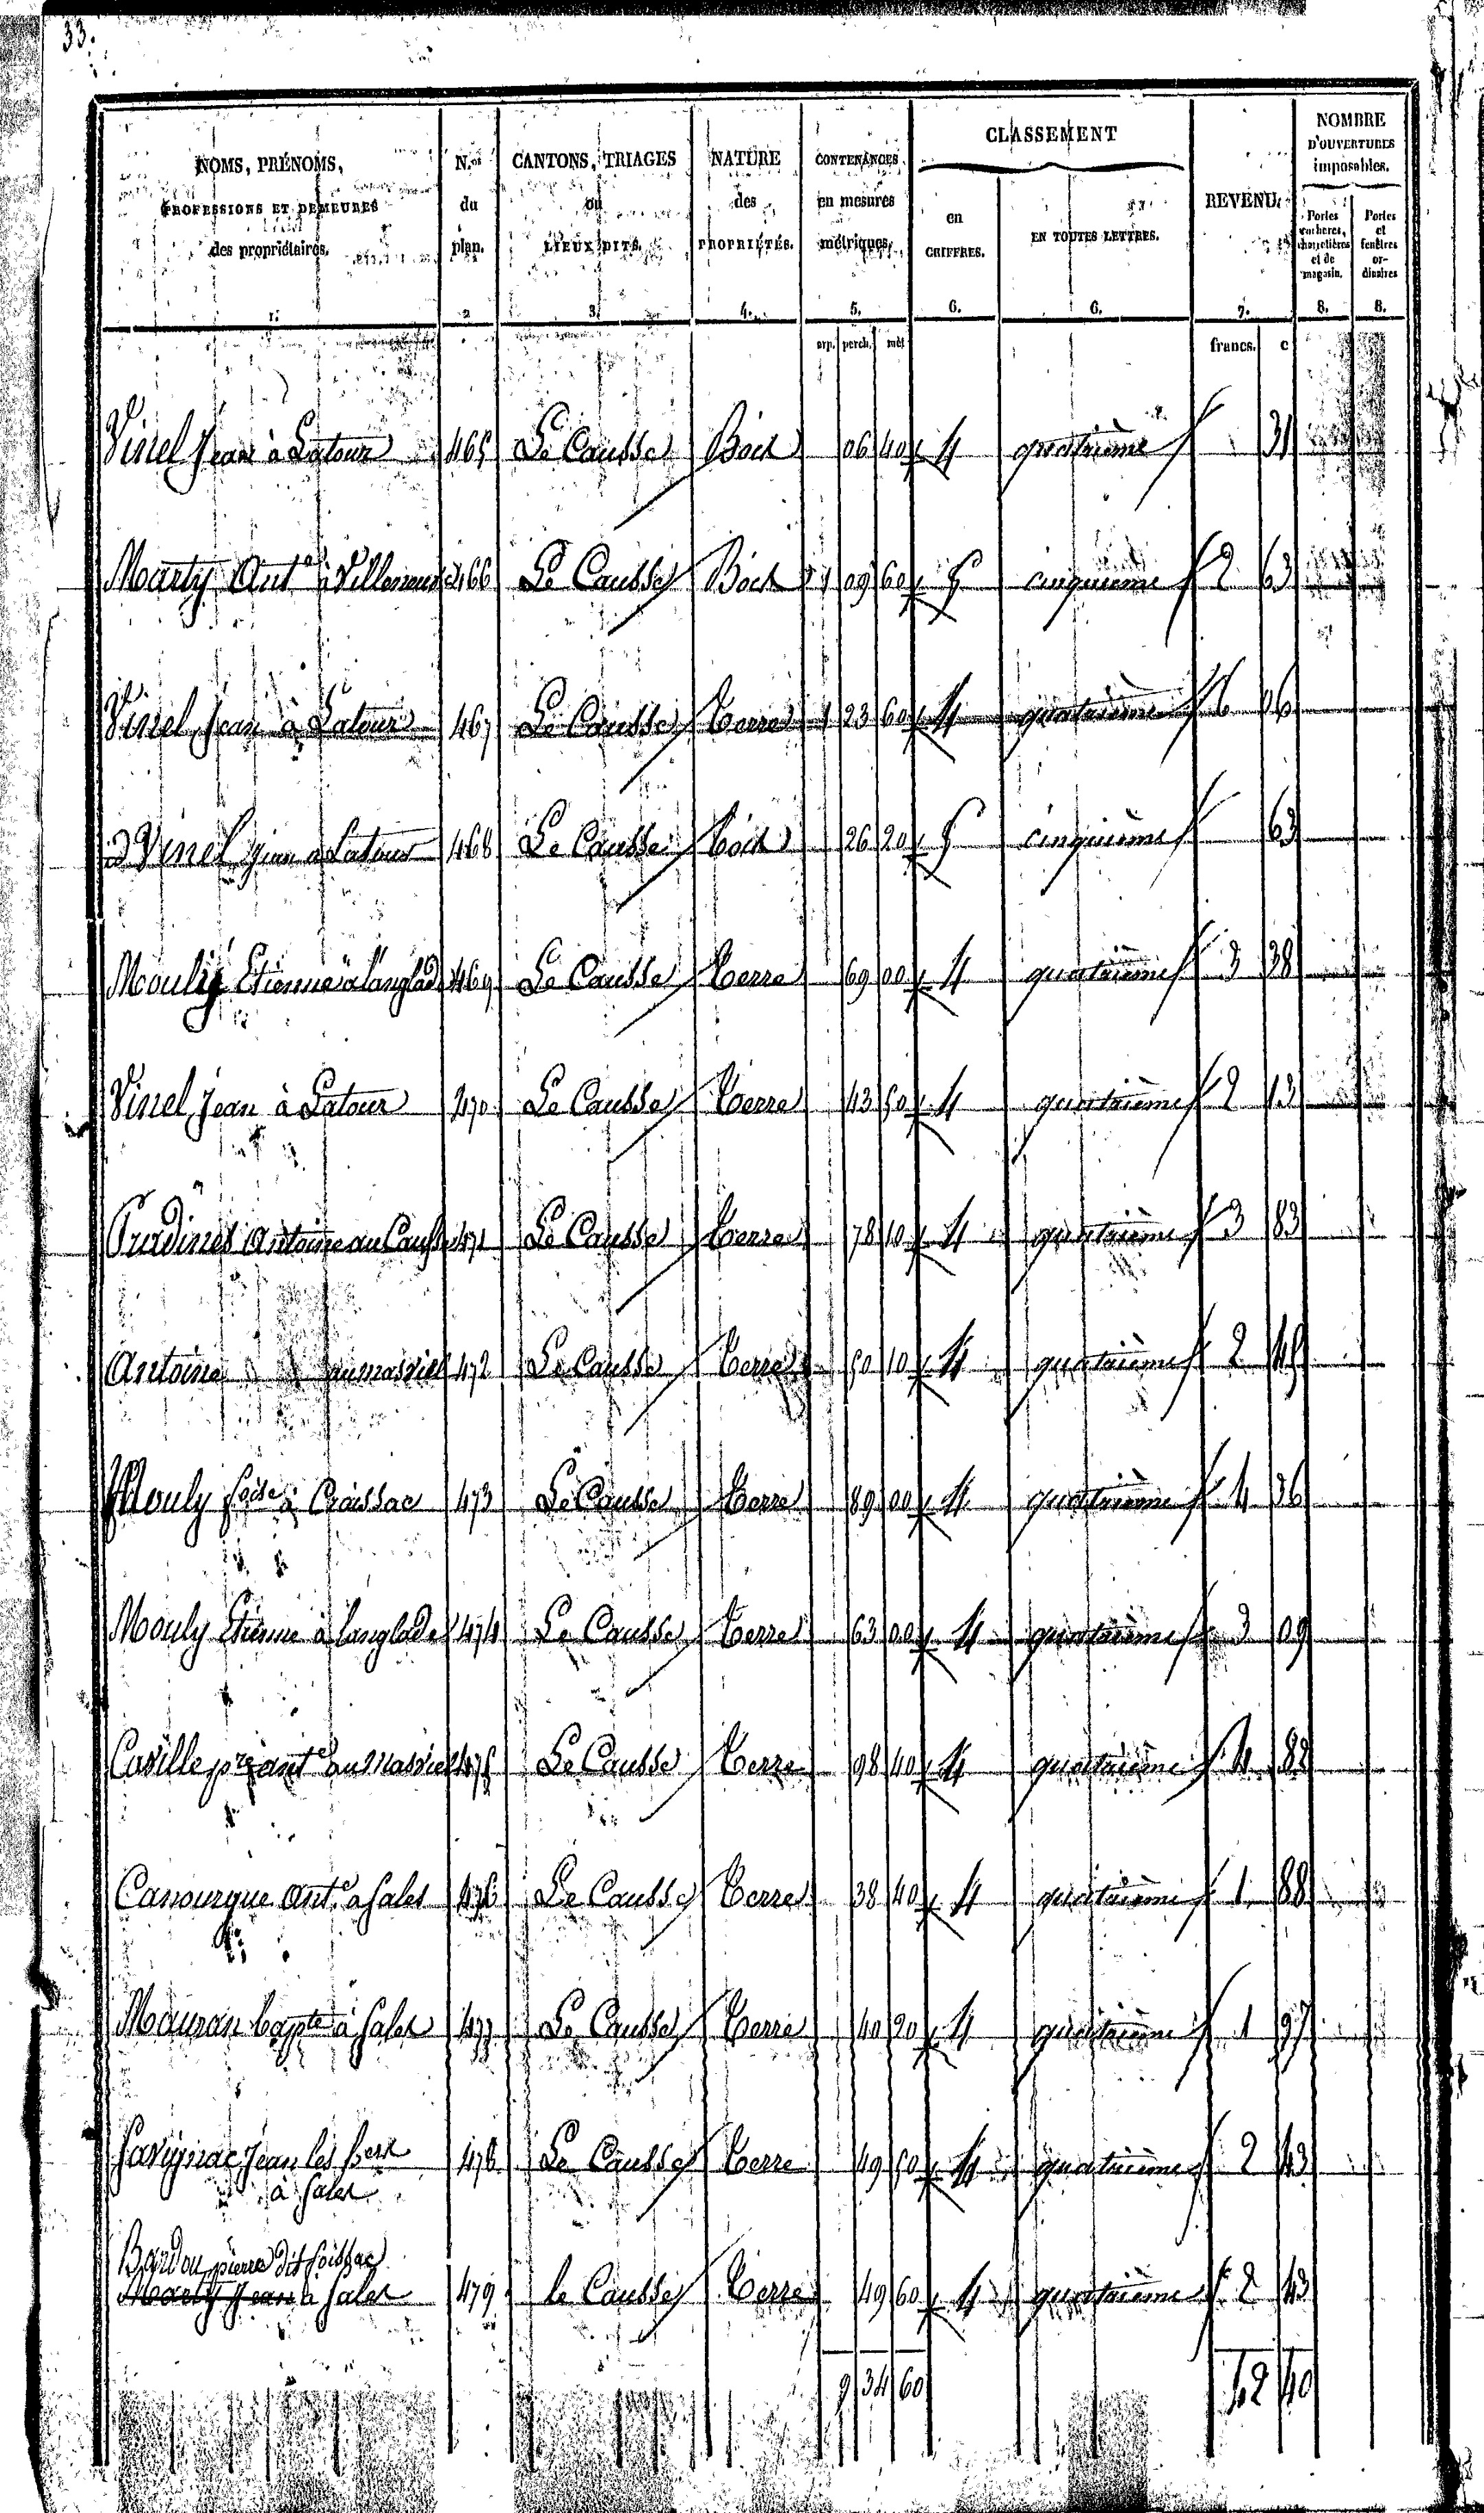 33.
NOMS, PRÉNOMS, PROFESSIONS ET DEMEURES des propriétaires. | N.os du plan. | CANTONS, TRIAGES ou LIEUX DITS. | NATURE des PROPRIÉTÉS. | CONTENANCES en mesures métriques. | CLASSEMENT en CHIFFRES. | EN TOUTES LETTRES. | REVENU. | NOMBRE D'OUVERTURES imposables. Portes cochères, charretières et de magasin. | Portes et fenêtres ordinaires
1. | 2 | 3. | 4. | 5. | 6. | 6. | 7. | 8. | 8.
arp. perch. mèt | francs. c
Vinel Jean à Latour | 465 | Le Causse | Bois | 06 40 | 4 | quatrième | 31
Marty Ant.e à Villeneuve | 466 | Le Causse | Bois | 1 09 60 | 5 | cinquième | 2 63
Vinel Jean à Latour | 467 | Le Causse | Terre | 1 23 60 | 4 | quatrième | 6 06
Vinel Jean à Latour | 468 | Le Causse | bois | 26 20 | 5 | cinquième | 63
Mouly Etienne à langlade | 469 | Le Causse | Terre | 69 00 | 4 | quatrième | 3 38
Vinel Jean à Latour | 470 | Le Causse | Terre | 43 50 | 4 | quatrième | 2 13
Pradines Antoine au Causse | 471 | Le Causse | Terre | 78 10 | 4 | quatrième | 3 83
Antoine au massiel | 472 | Le Causse | Terre | 50 10 | 4 | quatrième | 2 45
Mouly à Croissac | 473 | Le Causse | Terre | 89 00 | 4 | quatrième | 4 36
Mouly Etienne à langlade | 474 | Le Causse | Terre | 63 00 | 4 | quatrième | 3 09
Caville ant.e au massiel | 475 | Le Causse | Terre | 98 40 | 4 | quatrième | 4 82
Canourgue Ant.e à Sales | 476 | Le Causse | Terre | 38 40 | 4 | quatrième | 1 88
Mauran bapte à Sales | 477 | Le Causse | Terre | 40 20 | 4 | quatrième | 1 97
Savignac Jean les | 478 | Le Causse | Terre | 49 50 | 4 | quatrième | 2 43
à Sales
Bardou pierre dit Soissac
Marty Jean à Sales | 479 | le Causse | Terre | 49 60 | 4 | quatrième | 2 43
9 34 60 | 42 40